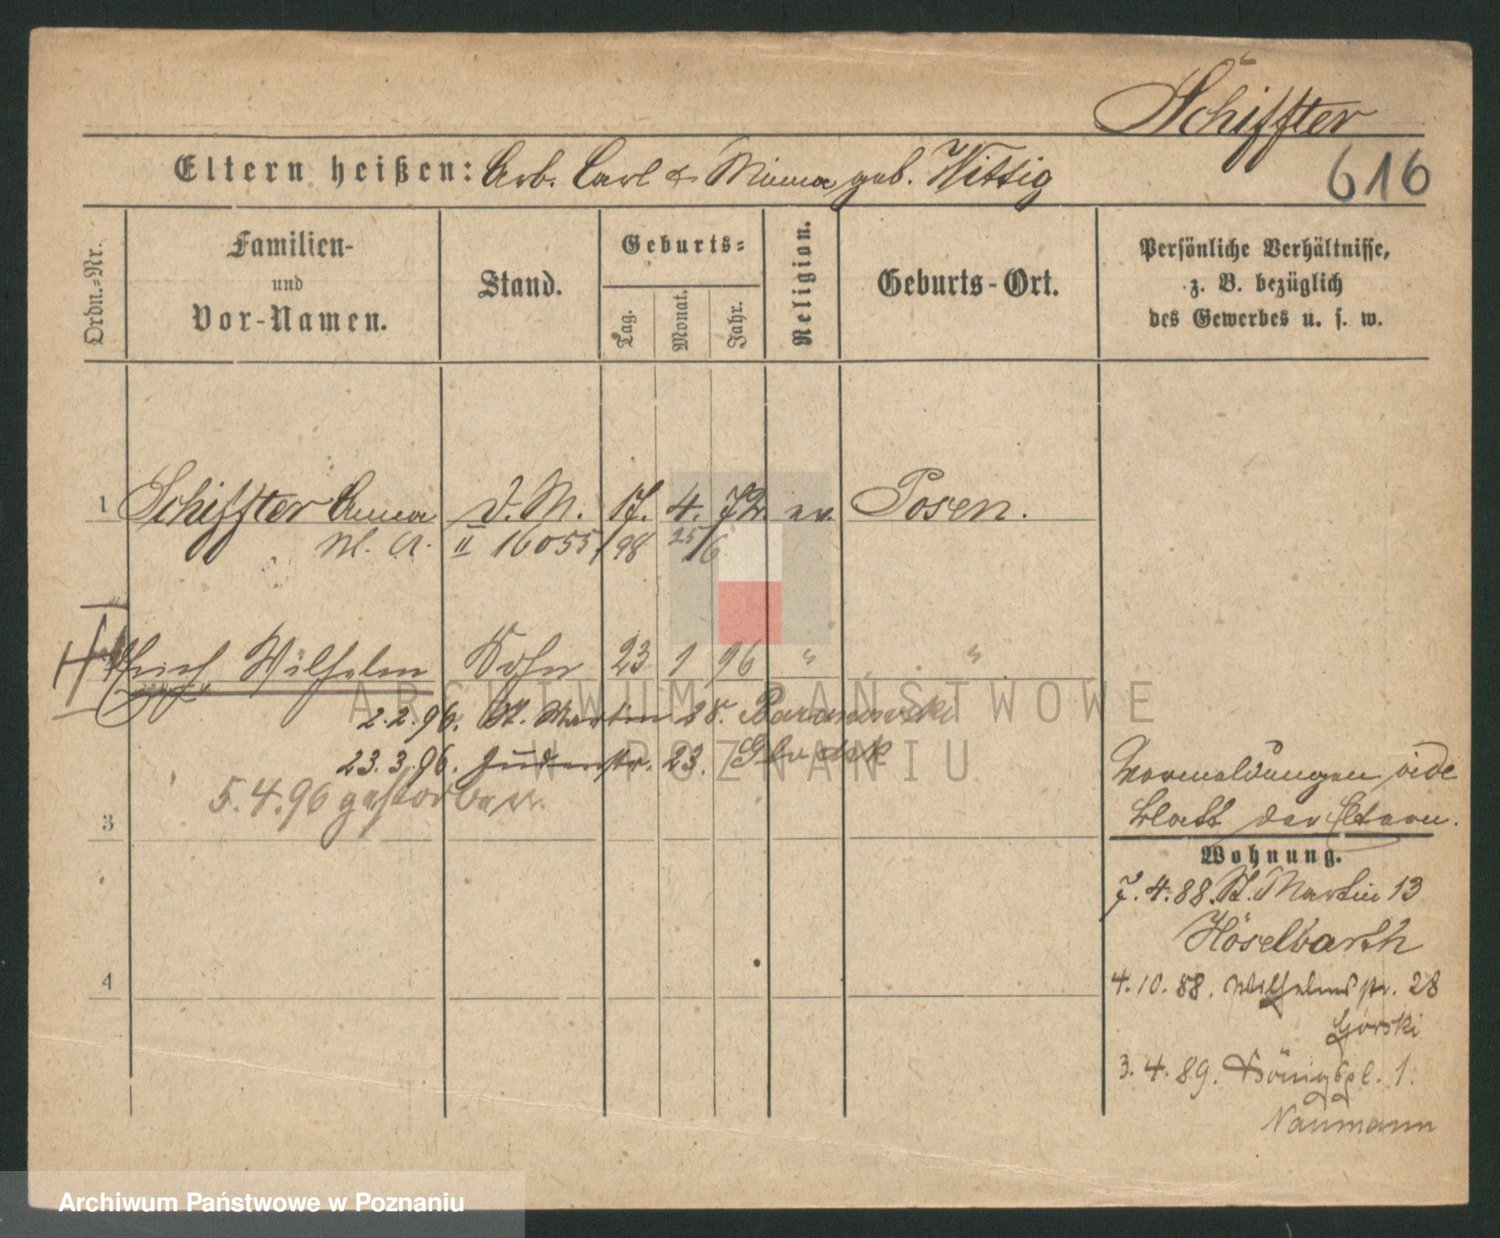 Schiffter
616
Eltern heißen: Arb. Carl & Minna geb. Wittig
Ordn.-Nr.
Familien-
und
Vor-Namen.
Stand.
Geburts-
Tag. Monat. Jahr.
Religion.
Geburts-Ort.
Persönliche Verhältnisse,
z. B. bezüglich
des Gewerbes u. s. w.
1 Schiffter Anna D.M. 17. 4. 72 ev. Posen.
M. A. II 16055/98 25/6
Wilhelm Sohn 23 1 96 " "
2.2.96. St. Martin 28. Baranowski
23.3.96. Judenstr. 23.
5.4.96 gestorben.
3
4
Vormeldungen vide
Blatt der Eltern.
Wohnung.
7.4.88. St. Martin 13
Höselbarth
4.10.88. Wilhelmstr. 28
Górski
3.4.89. Königspl. 1.
Naumann
ARCHIWUM PAŃSTWOWE
W POZNANIU
Archiwum Państwowe w Poznaniu